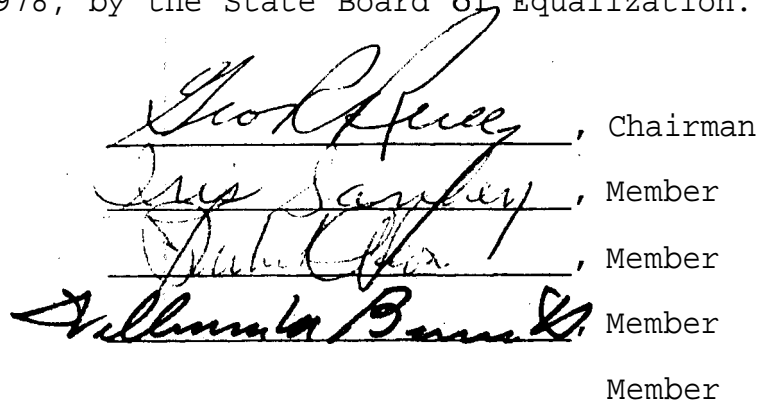 978, by the State Board of Equalization.
Geo R Reilly, Chairman
Iris Sankey, Member
, Member
William M Bennett, Member
Member